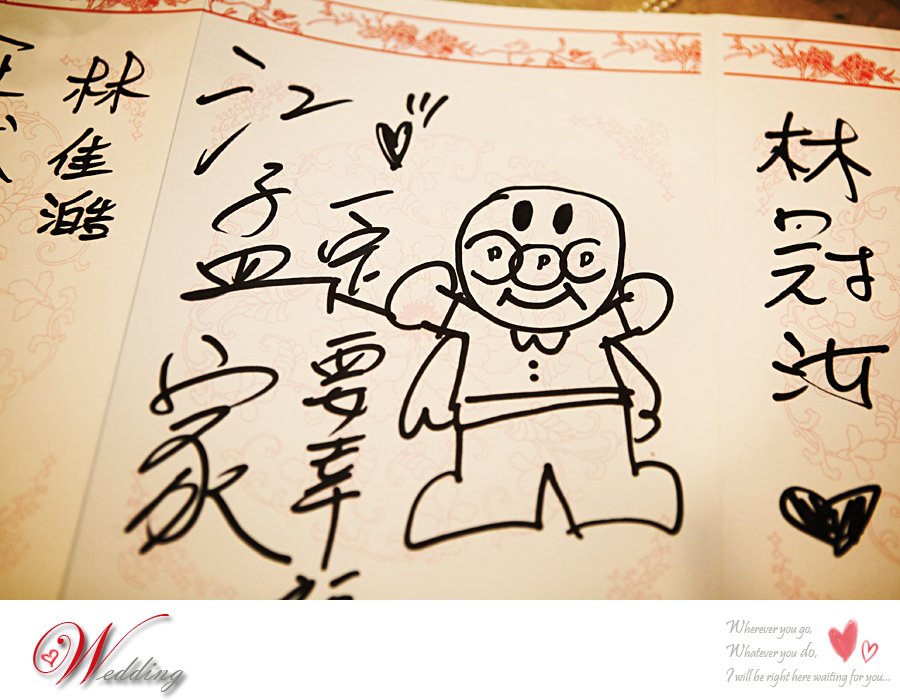 林冠汝
一定要幸
江孟家
林佳澔
P P P
Wedding
Wherever you go,
Whatever you do,
I will be right here waiting for you...